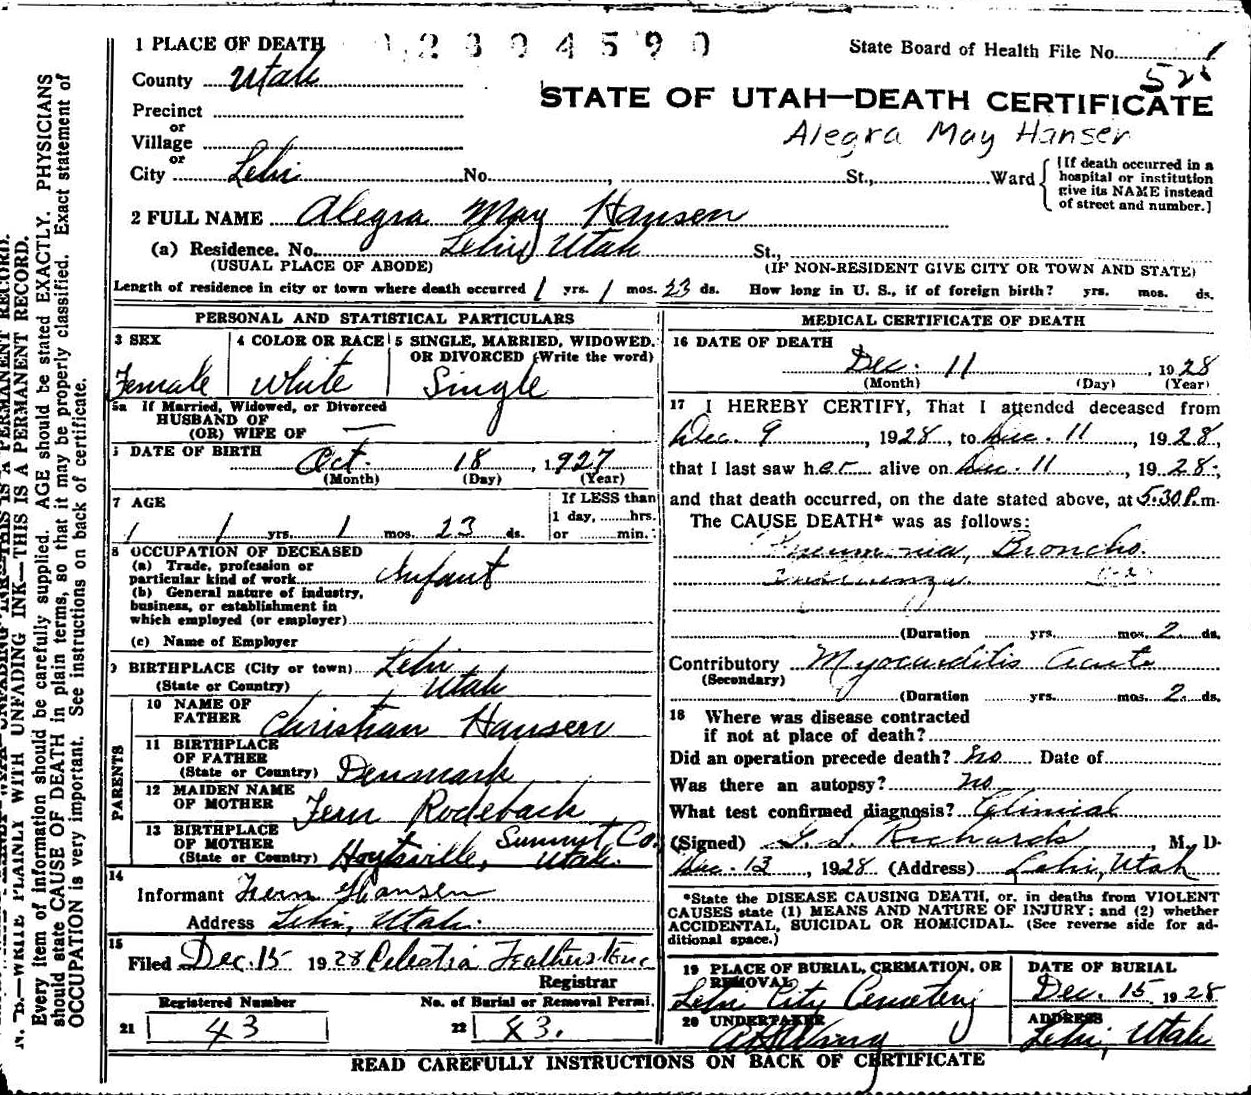 1 PLACE OF DEATH
State Board of Health File No. 1
County Utah
52
STATE OF UTAH—DEATH CERTIFICATE
Precinct
or
Village
or
Alegra May Hansen
City Lehi No. , St., Ward
[If death occurred in a
hospital or institution
give its NAME instead
of street and number.]
2 FULL NAME Alegra May Hansen
(a) Residence. No. Lehi, Utah St.,
(USUAL PLACE OF ABODE) (IF NON-RESIDENT GIVE CITY OR TOWN AND STATE)
Length of residence in city or town where death occurred 1 yrs. 1 mos. 23 ds. How long in U. S., if of foreign birth? yrs. mos. ds.
PERSONAL AND STATISTICAL PARTICULARS
3 SEX
Female
4 COLOR OR RACE
White
5 SINGLE, MARRIED, WIDOWED.
OR DIVORCED (Write the word)
Single
5a If Married, Widowed, or Divorced
HUSBAND OF
(OR) WIFE OF —
DATE OF BIRTH Oct. 18, 1927
(Month) (Day) (Year)
7 AGE
1 yrs. 1 mos. 23 ds.
If LESS than
1 day, hrs.
or min.
8 OCCUPATION OF DECEASED
(a) Trade, profession or
particular kind of work Infant
(b) General nature of industry,
business, or establishment in
which employed (or employer)
(c) Name of Employer
9 BIRTHPLACE (City or town) Lehi
(State or Country) Utah
PARENTS
10 NAME OF
FATHER Christian Hansen
11 BIRTHPLACE
OF FATHER
(State or Country) Denmark
12 MAIDEN NAME
OF MOTHER Fern Rodeback
13 BIRTHPLACE
OF MOTHER
(State or Country) Hoytsville, Summit Co. Utah.
14
Informant Fern Hansen
Address Lehi, Utah.
15
Filed Dec. 15 1928 Celestia Featherstone
Registrar
Registered Number
21 43
No. of Burial or Removal Permi.
22 43.
MEDICAL CERTIFICATE OF DEATH
16 DATE OF DEATH
Dec. 11, 1928
(Month) (Day) (Year)
17 I HEREBY CERTIFY, That I attended deceased from
Dec. 9, 1928, to Dec. 11, 1928,
that I last saw her alive on Dec. 11, 1928.
and that death occurred, on the date stated above, at 5.30 P.m.
The CAUSE DEATH* was as follows:
Pneumonia, Broncho.
Influenza
(Duration yrs. mos. 2 ds.
Contributory Myocarditis Acute
(Secondary)
(Duration yrs. mos. 2 ds.
18 Where was disease contracted
if not at place of death?
Did an operation precede death? No Date of
Was there an autopsy? no
What test confirmed diagnosis? Clinical
(Signed) G. S. Richards, M. D.
Dec. 13, 1928 (Address) Lehi, Utah
*State the DISEASE CAUSING DEATH, or, in deaths from VIOLENT
CAUSES state (1) MEANS AND NATURE OF INJURY; and (2) whether
ACCIDENTAL, SUICIDAL OR HOMICIDAL. (See reverse side for ad-
ditional space.)
19 PLACE OF BURIAL, CREMATION, OR
REMOVAL
Lehi City Cemetery
DATE OF BURIAL
Dec. 15 1928
20 UNDERTAKER
ADDRESS
Lehi, Utah
READ CAREFULLY INSTRUCTIONS ON BACK OF CERTIFICATE
N. B.—WRITE PLAINLY WITH UNFADING INK—THIS IS A PERMANENT RECORD.
Every item of information should be carefully supplied. AGE should be stated EXACTLY. PHYSICIANS
should state CAUSE OF DEATH in plain terms, so that it may be properly classified. Exact statement of
OCCUPATION is very important. See instructions on back of certificate.